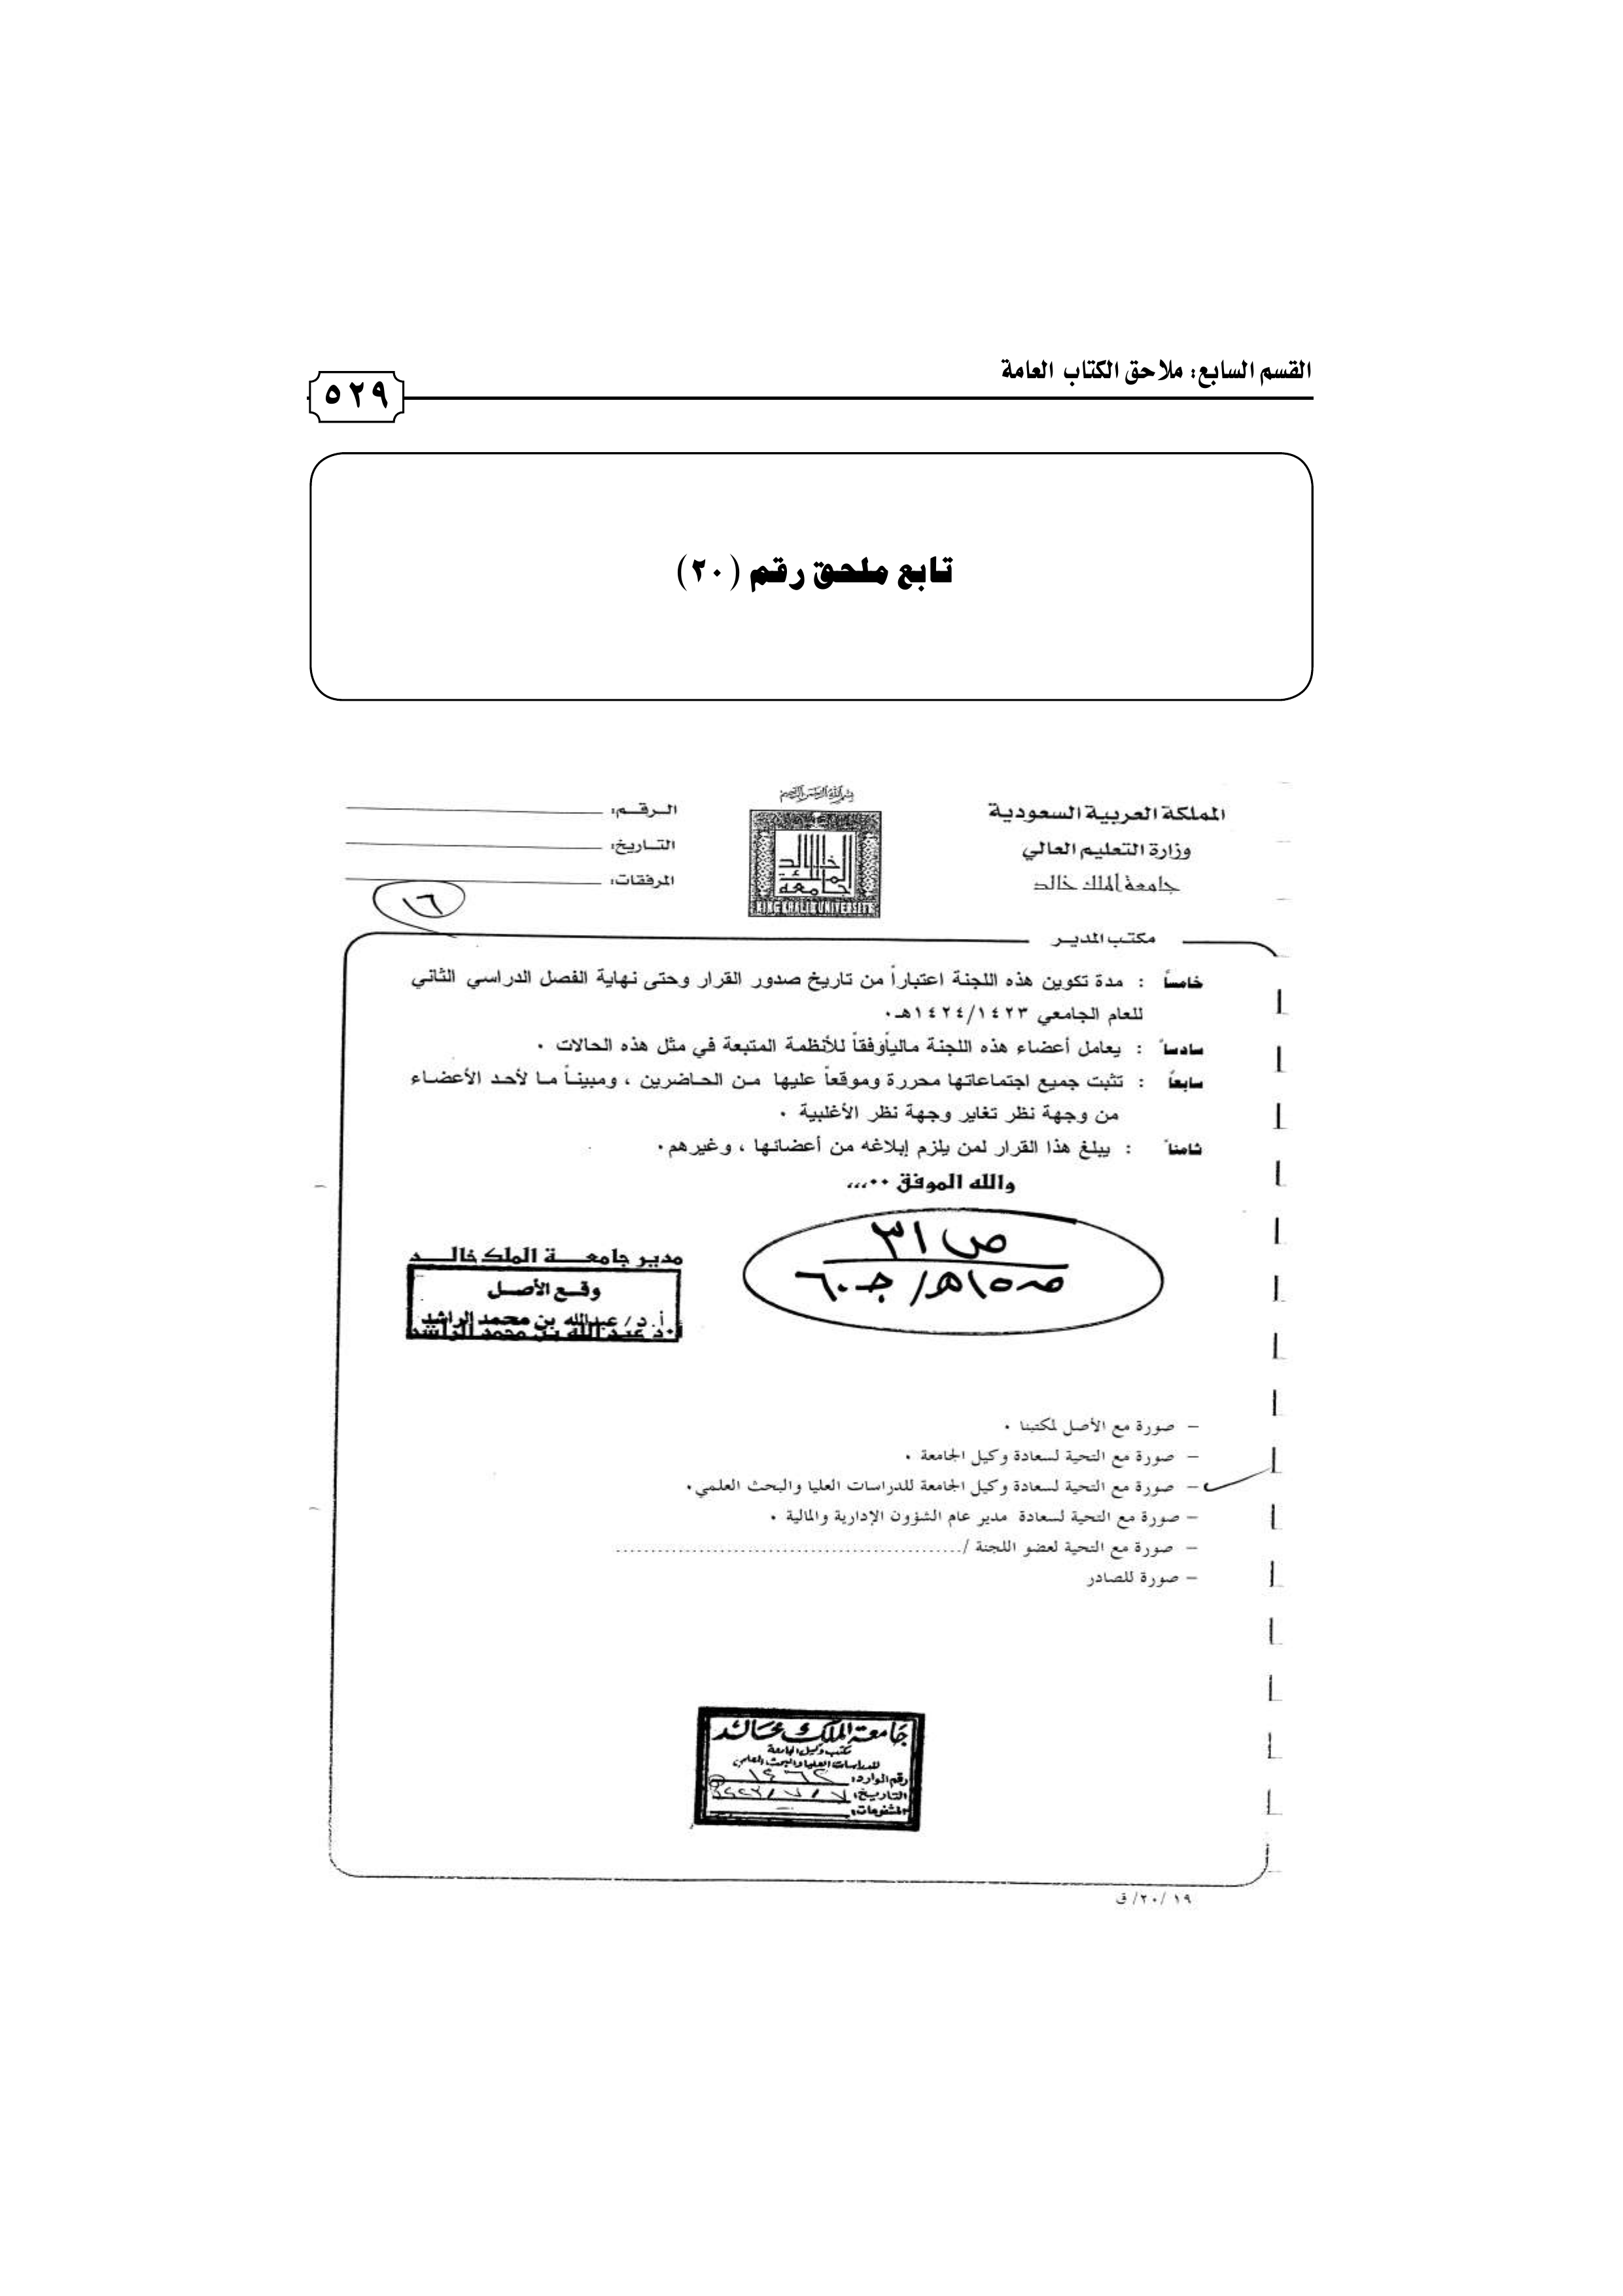 القسم السابع: ملاحق الكتاب العامة
٥٢٩
تابع ملحق رقم (٢٠)
المملكة العربية السعودية
وزارة التعليم العالي
جامعة الملك خالد
بسم الله الرحمن الرحيم
خالد
الملك
جامعة
KING KHALID UNIVERSITY
الـرقـم:
التـاريخ:
المرفقات:
١٦
مكتب المديـر
خامساً : مدة تكوين هذه اللجنة اعتباراً من تاريخ صدور القرار وحتى نهاية الفصل الدراسي الثاني
للعام الجامعي ١٤٢٤/١٤٢٣هـ٠
سادساً : يعامل أعضاء هذه اللجنة مالياًوفقاً للأنظمة المتبعة في مثل هذه الحالات ٠
سابعاً : تثبت جميع اجتماعاتها محررة وموقعاً عليها من الحاضرين ، ومبيناً ما لأحد الأعضاء
من وجهة نظر تغاير وجهة نظر الأغلبية ٠
ثامناً : يبلغ هذا القرار لمن يلزم إبلاغه من أعضائها ، وغيرهم٠
والله الموفق ٠٠،،،
ص ٣١
ص١٥هـ/ جـ٦٠
مدير جامعـــة الملك خالـــد
وقـع الأصـل
أ.د/ عبدالله بن محمد الراشد
أ٠د عبد الله بن محمد الراشد
– صورة مع الأصل لمكتبنا ٠
– صورة مع التحية لسعادة وكيل الجامعة ٠
– صورة مع التحية لسعادة وكيل الجامعة للدراسات العليا والبحث العلمي٠
– صورة مع التحية لسعادة مدير عام الشؤون الإدارية والمالية ٠
– صورة مع التحية لعضو اللجنة /..................................................
– صورة للصادر
جامعة الملك خالد
مكتب وكيل الجامعة
للدراسات العليا والبحث العلمي
رقم الوارد: ١٤٦٢
التاريخ: ٧/٧/١٤٢٣
المشفوعات: –
١٩ /٢٠/ ق